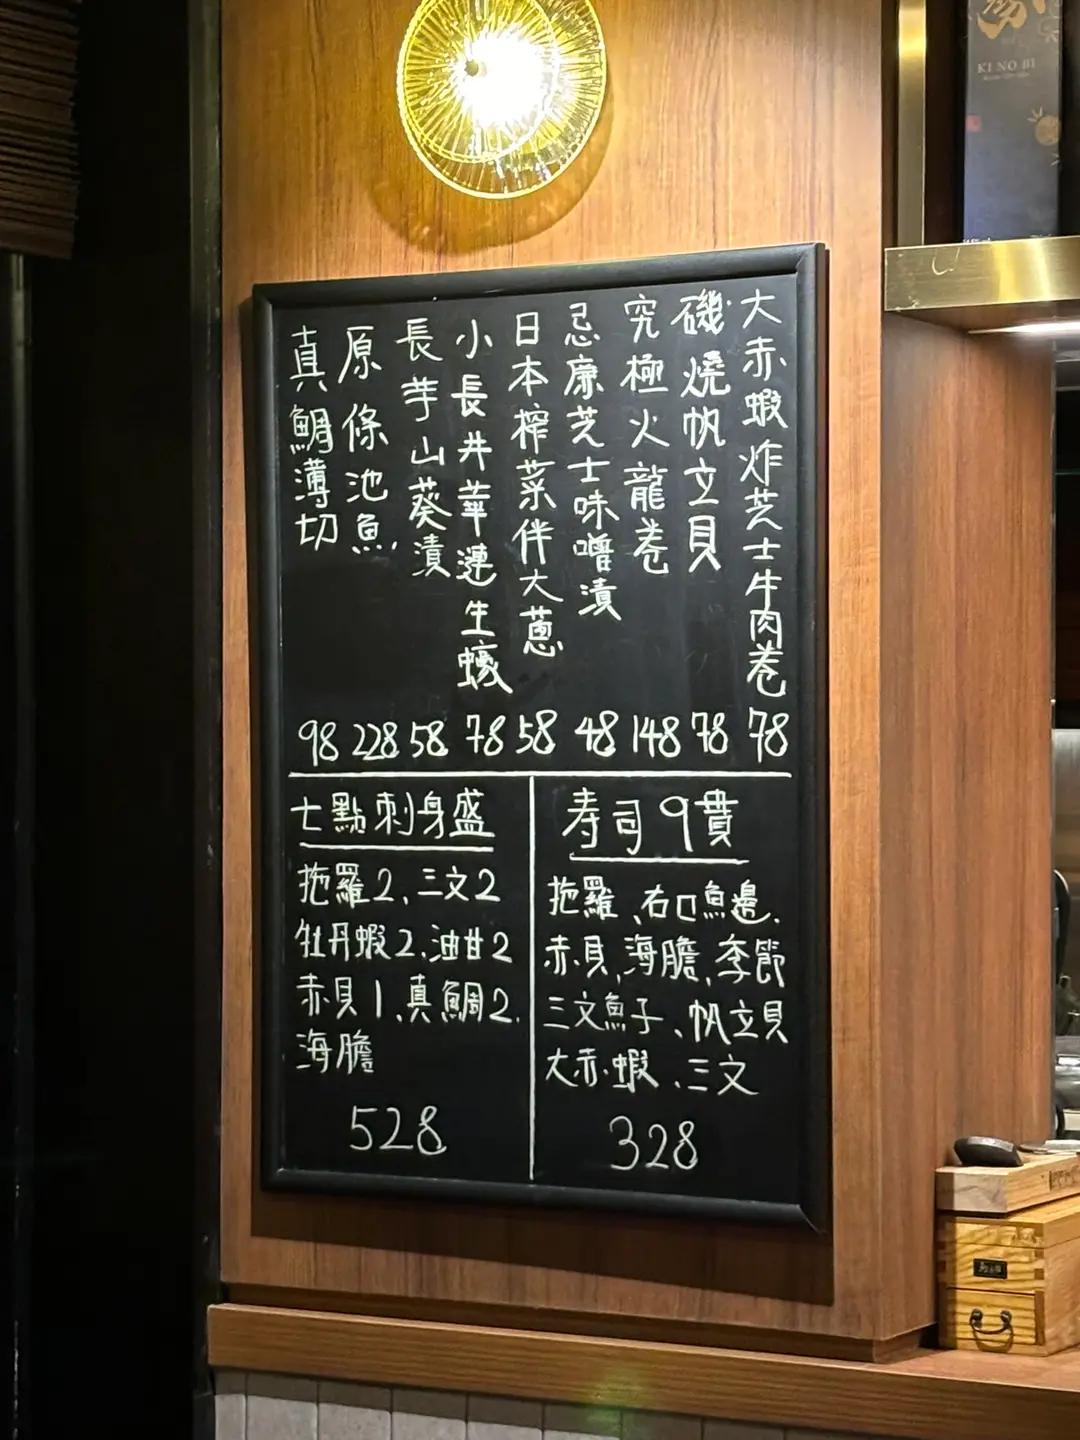 大赤蝦炸芝士牛肉卷 78
磯燒帆立貝 78
究極火龍卷 148
忌廉芝士味噌漬 48
日本榨菜伴大蔥 58
小長井華漣生蠔 78
長芋山葵漬 58
原條池魚 228
真鯛薄切 98
七點刺身盛
拖羅2、三文2
牡丹蝦2、油甘2
赤貝1、真鯛2、
海膽
528
寿司9貫
拖羅、右口魚邊、
赤貝、海膽、季節
三文魚子、帆立貝
大赤蝦、三文
328
KI NO BI